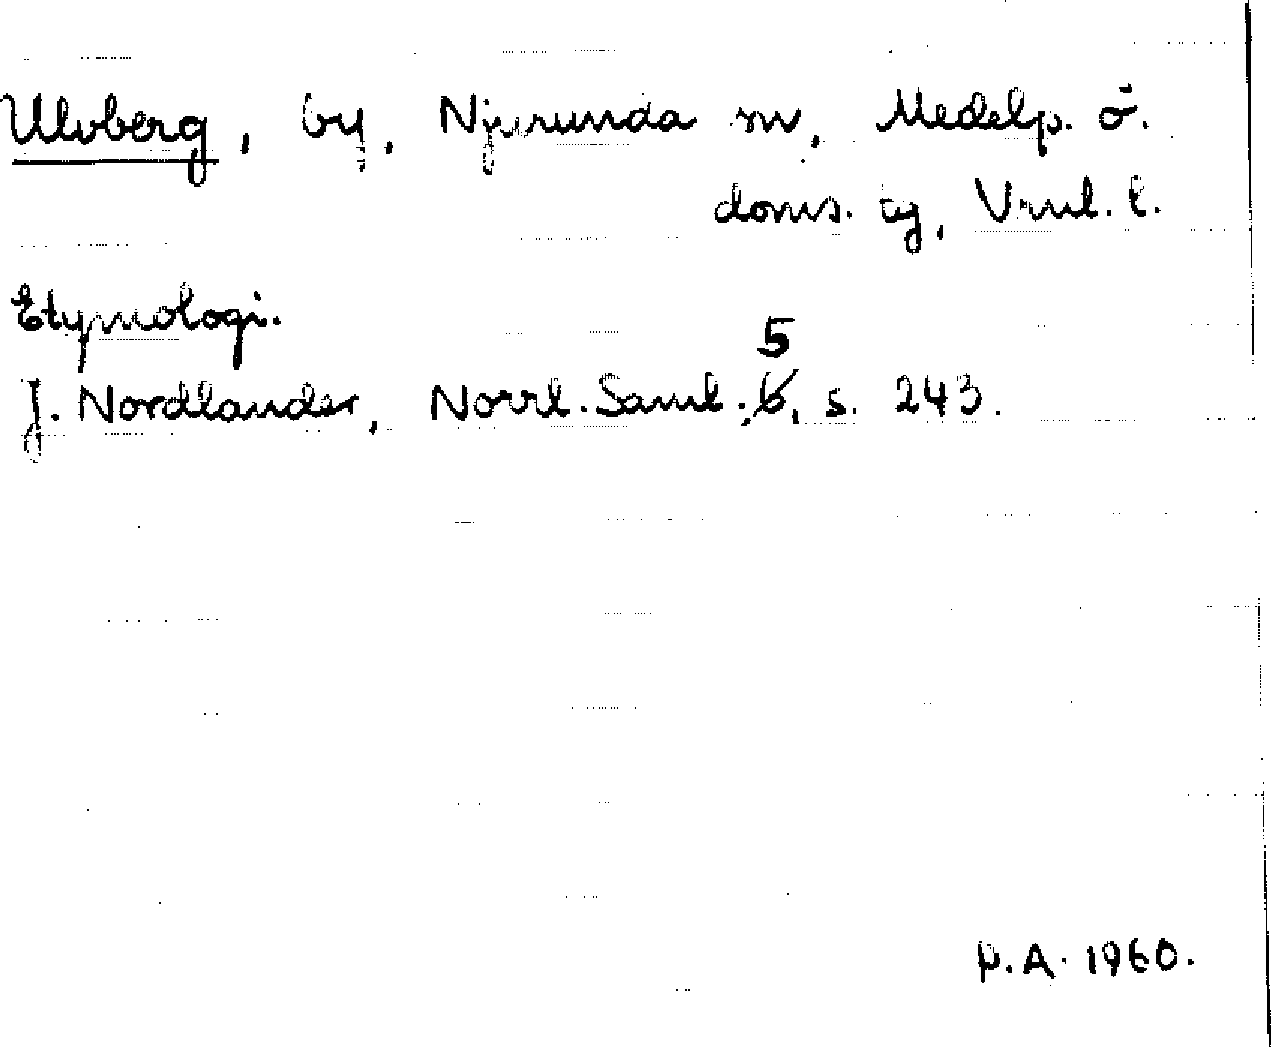 Ulvberg, by, Njurunda sn, Medelp. ö.
doms. tg, Vnrl. l.
Etymologi.
5
J. Nordlander, Norrl. Saml. 6, s. 243.
P.A. 1960.